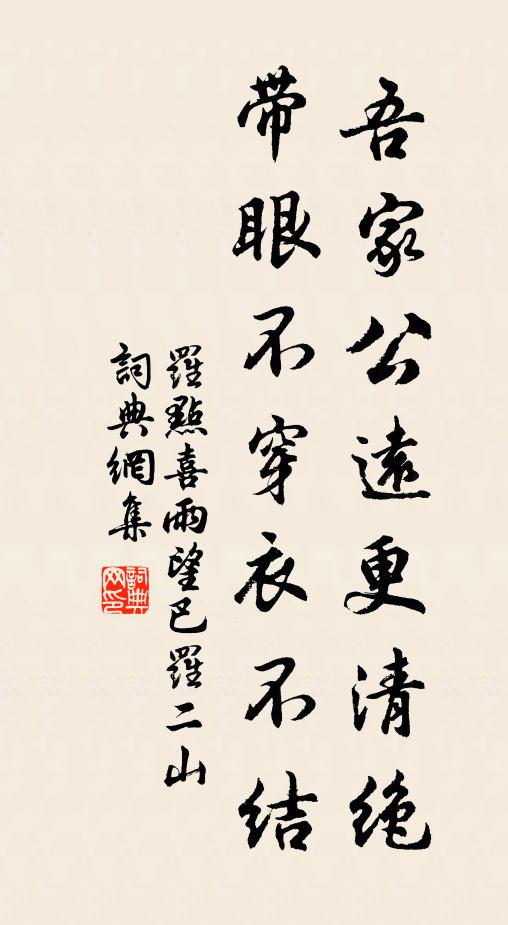 吾家公遠更清绝
带眼不穿衣不结
羅點喜雨望巴羅二山
詞典網集
詞典网印